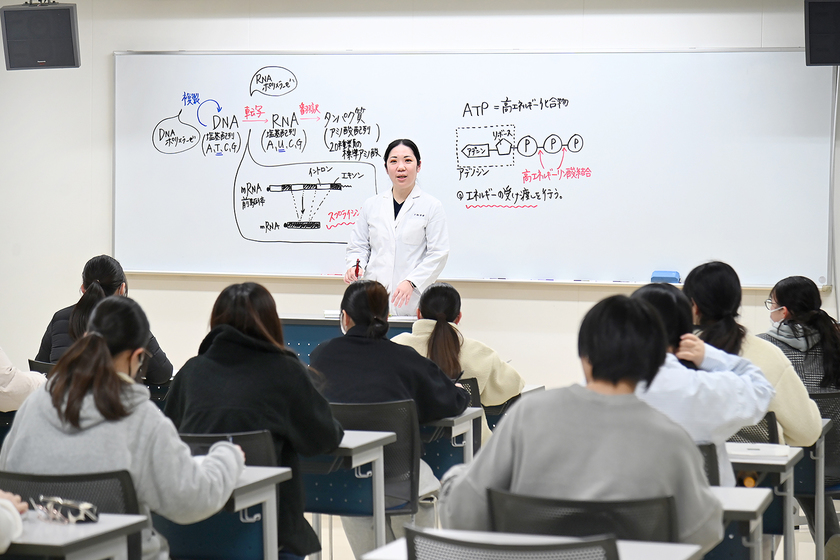 RNA
ポリメラーゼ
複製
DNA
ポリメラーゼ
DNA
転写
RNA
翻訳
タンパク質
(塩基配列)
(A,T,C,G)
(塩基配列)
(A,U,C,G)
(アミノ酸配列)
20種類の
標準アミノ酸
イントロン
エキソン
mRNA
前駆体
スプライシン
mRNA
ATP=高エネルギー化合物
リボース
アデニン
P
P
P
アデノシン
高エネルギーリン酸結合
エネルギーの受け渡しを行う。